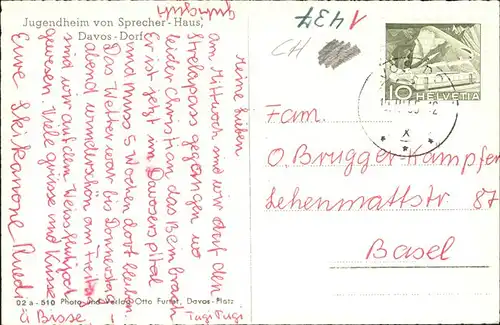 Jugendheim von Sprecher-Haus,
Davos-Dorf
gutschrift
1437
CH
10 HELVETIA
X
meine lieben
am Mittwoch sind wir auf den
Strelapass gegangen wo
leider Christian das Bein brach
Er ist jetzt im Davoserspital
und muss 5 Wochen dort bleiben.
Das Wetter war bis Donnerstag-
abend wunderschön am Freitag
sind wir auf dem Weissfluhjoch
gewesen. Viele grüsse und Küsse
Eure Skikanone Ruedi
ä Bisse
Tugi Tugi
Fam.
O. Brugger-Hampfer
Lehenmattstr 87
Basel
02 a - 510 Photo und Verlag Otto Furter, Davos-Platz